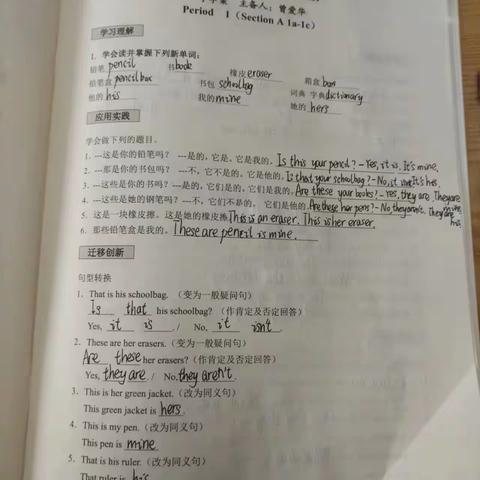 主备人：曾爱华
Period 1（Section A 1a-1c）
学习理解
1. 学会读并掌握下列新单词：
铅笔 pencil 书 book 橡皮 eraser 箱盒 box
铅笔盒 pencil box 书包 schoolbag 词典 字典 dictionary
他的 his 我的 mine 她的 hers
应用实践
学会做下列的题目。
1. ---这是你的铅笔吗？ ---是的，它是。它是我的。Is this your pencil? - Yes, it is. It's mine.
2. ---那是你的书包吗？ ---不，它不是的。它是他的。Is that your schoolbag? - No, it isn't It's his.
3. ---这些是你的书吗？ ---是的，它们是的，它们是我的。Are these your books? - Yes, they are. They are mine.
4. ---这些是她的钢笔吗？ ---不，它们不是的。 它们是他的 Are these her pens? - No, they aren't. They are his.
5. 这是一块橡皮擦。这是她的橡皮擦 This is an eraser. This is her eraser.
6. 那些铅笔盒是我的。These are pencil is mine.
迁移创新
句型转换
1. That is his schoolbag.（变为一般疑问句）
Is that his schoolbag?（作肯定及否定回答）
Yes, it is. / No, it isn't
2. These are her erasers.（变为一般疑问句）
Are these her erasers?（作肯定及否定回答）
Yes, they are. / No, they aren't.
3. This is her green jacket.（改为同义句）
This green jacket is hers.
4. This is my pen.（改为同义句）
This pen is mine
5. That is his ruler.（改为同义句）
That ruler is his